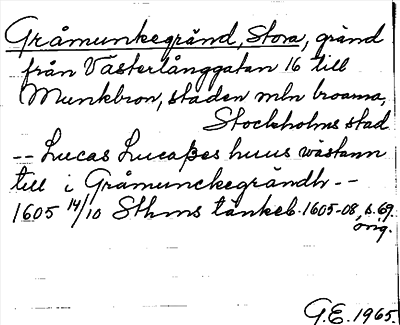 Gråmunkegränd, Stora, gränd
från Västerlånggatan 16 till
Munkbron, staden mln broarna,
Stockholms stad
-- Lucas Lucaβes huus wästann
till i Gråmunckegrändh --
1605 14/10 Sthms tänkeb. 1605-08, s. 69.
orig.
G.E. 1965.